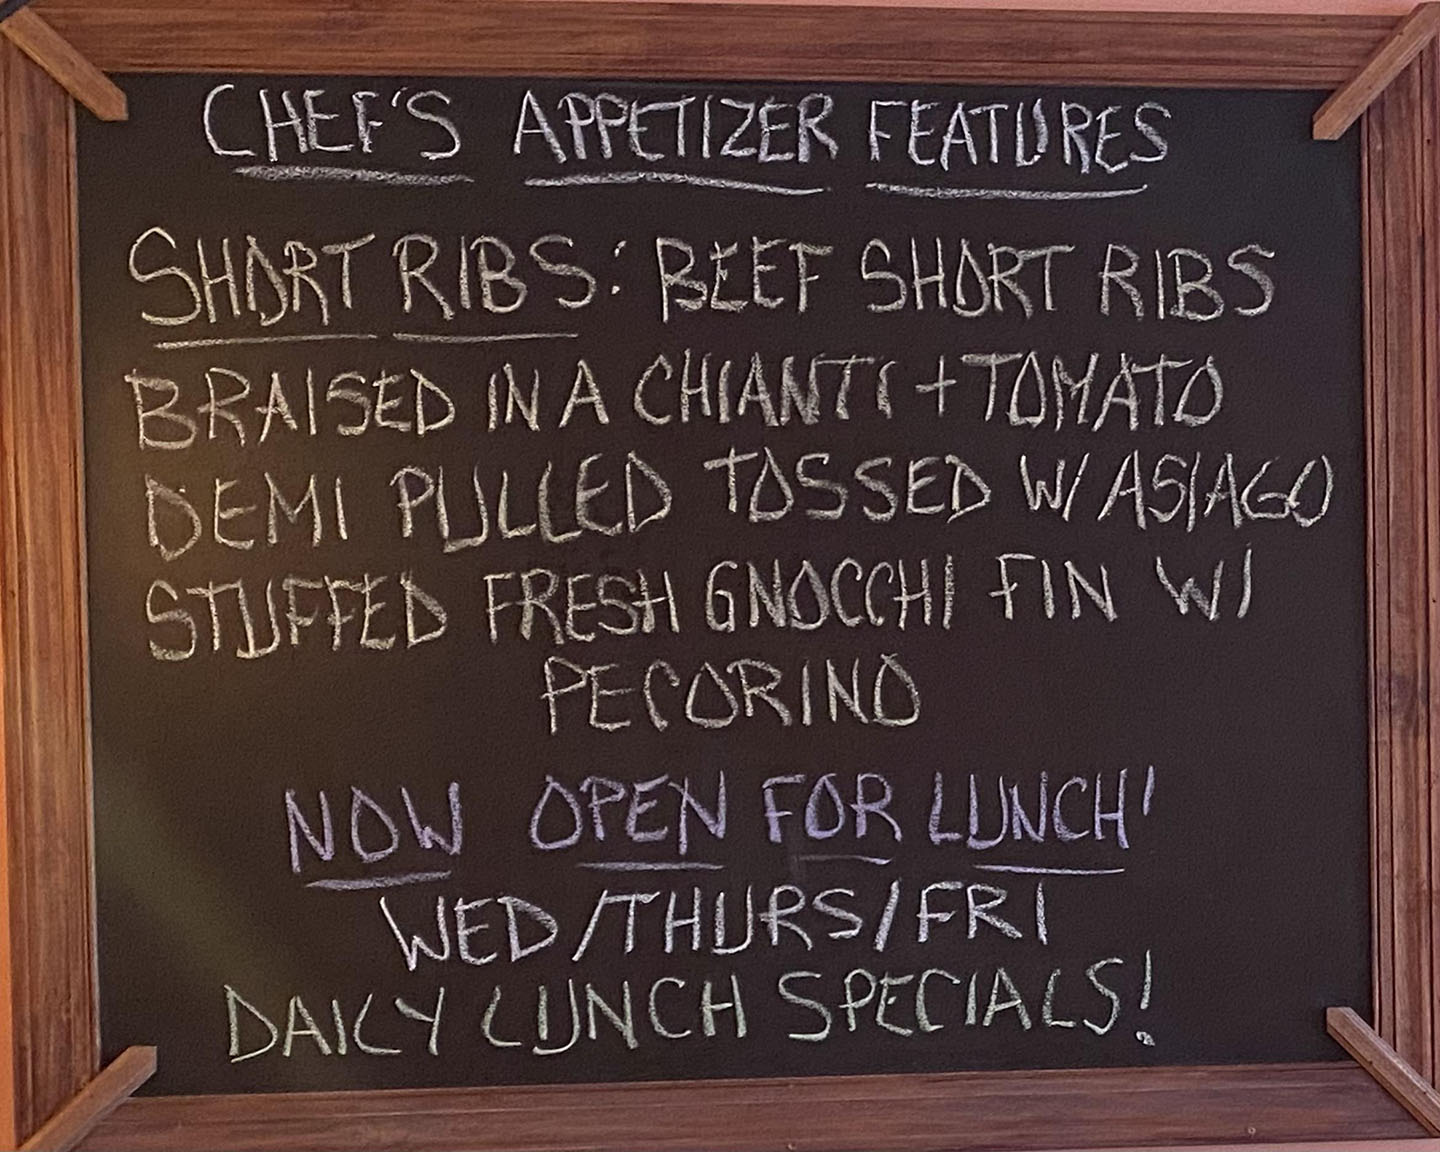 CHEF'S APPETIZER FEATURES
SHORT RIBS: BEEF SHORT RIBS
BRAISED IN A CHIANTI + TOMATO
DEMI PULLED TOSSED W/ ASIAGO
STUFFED FRESH GNOCCHI FIN W/
PECORINO
NOW OPEN FOR LUNCH!
WED/THURS/FRI
DAILY LUNCH SPECIALS!